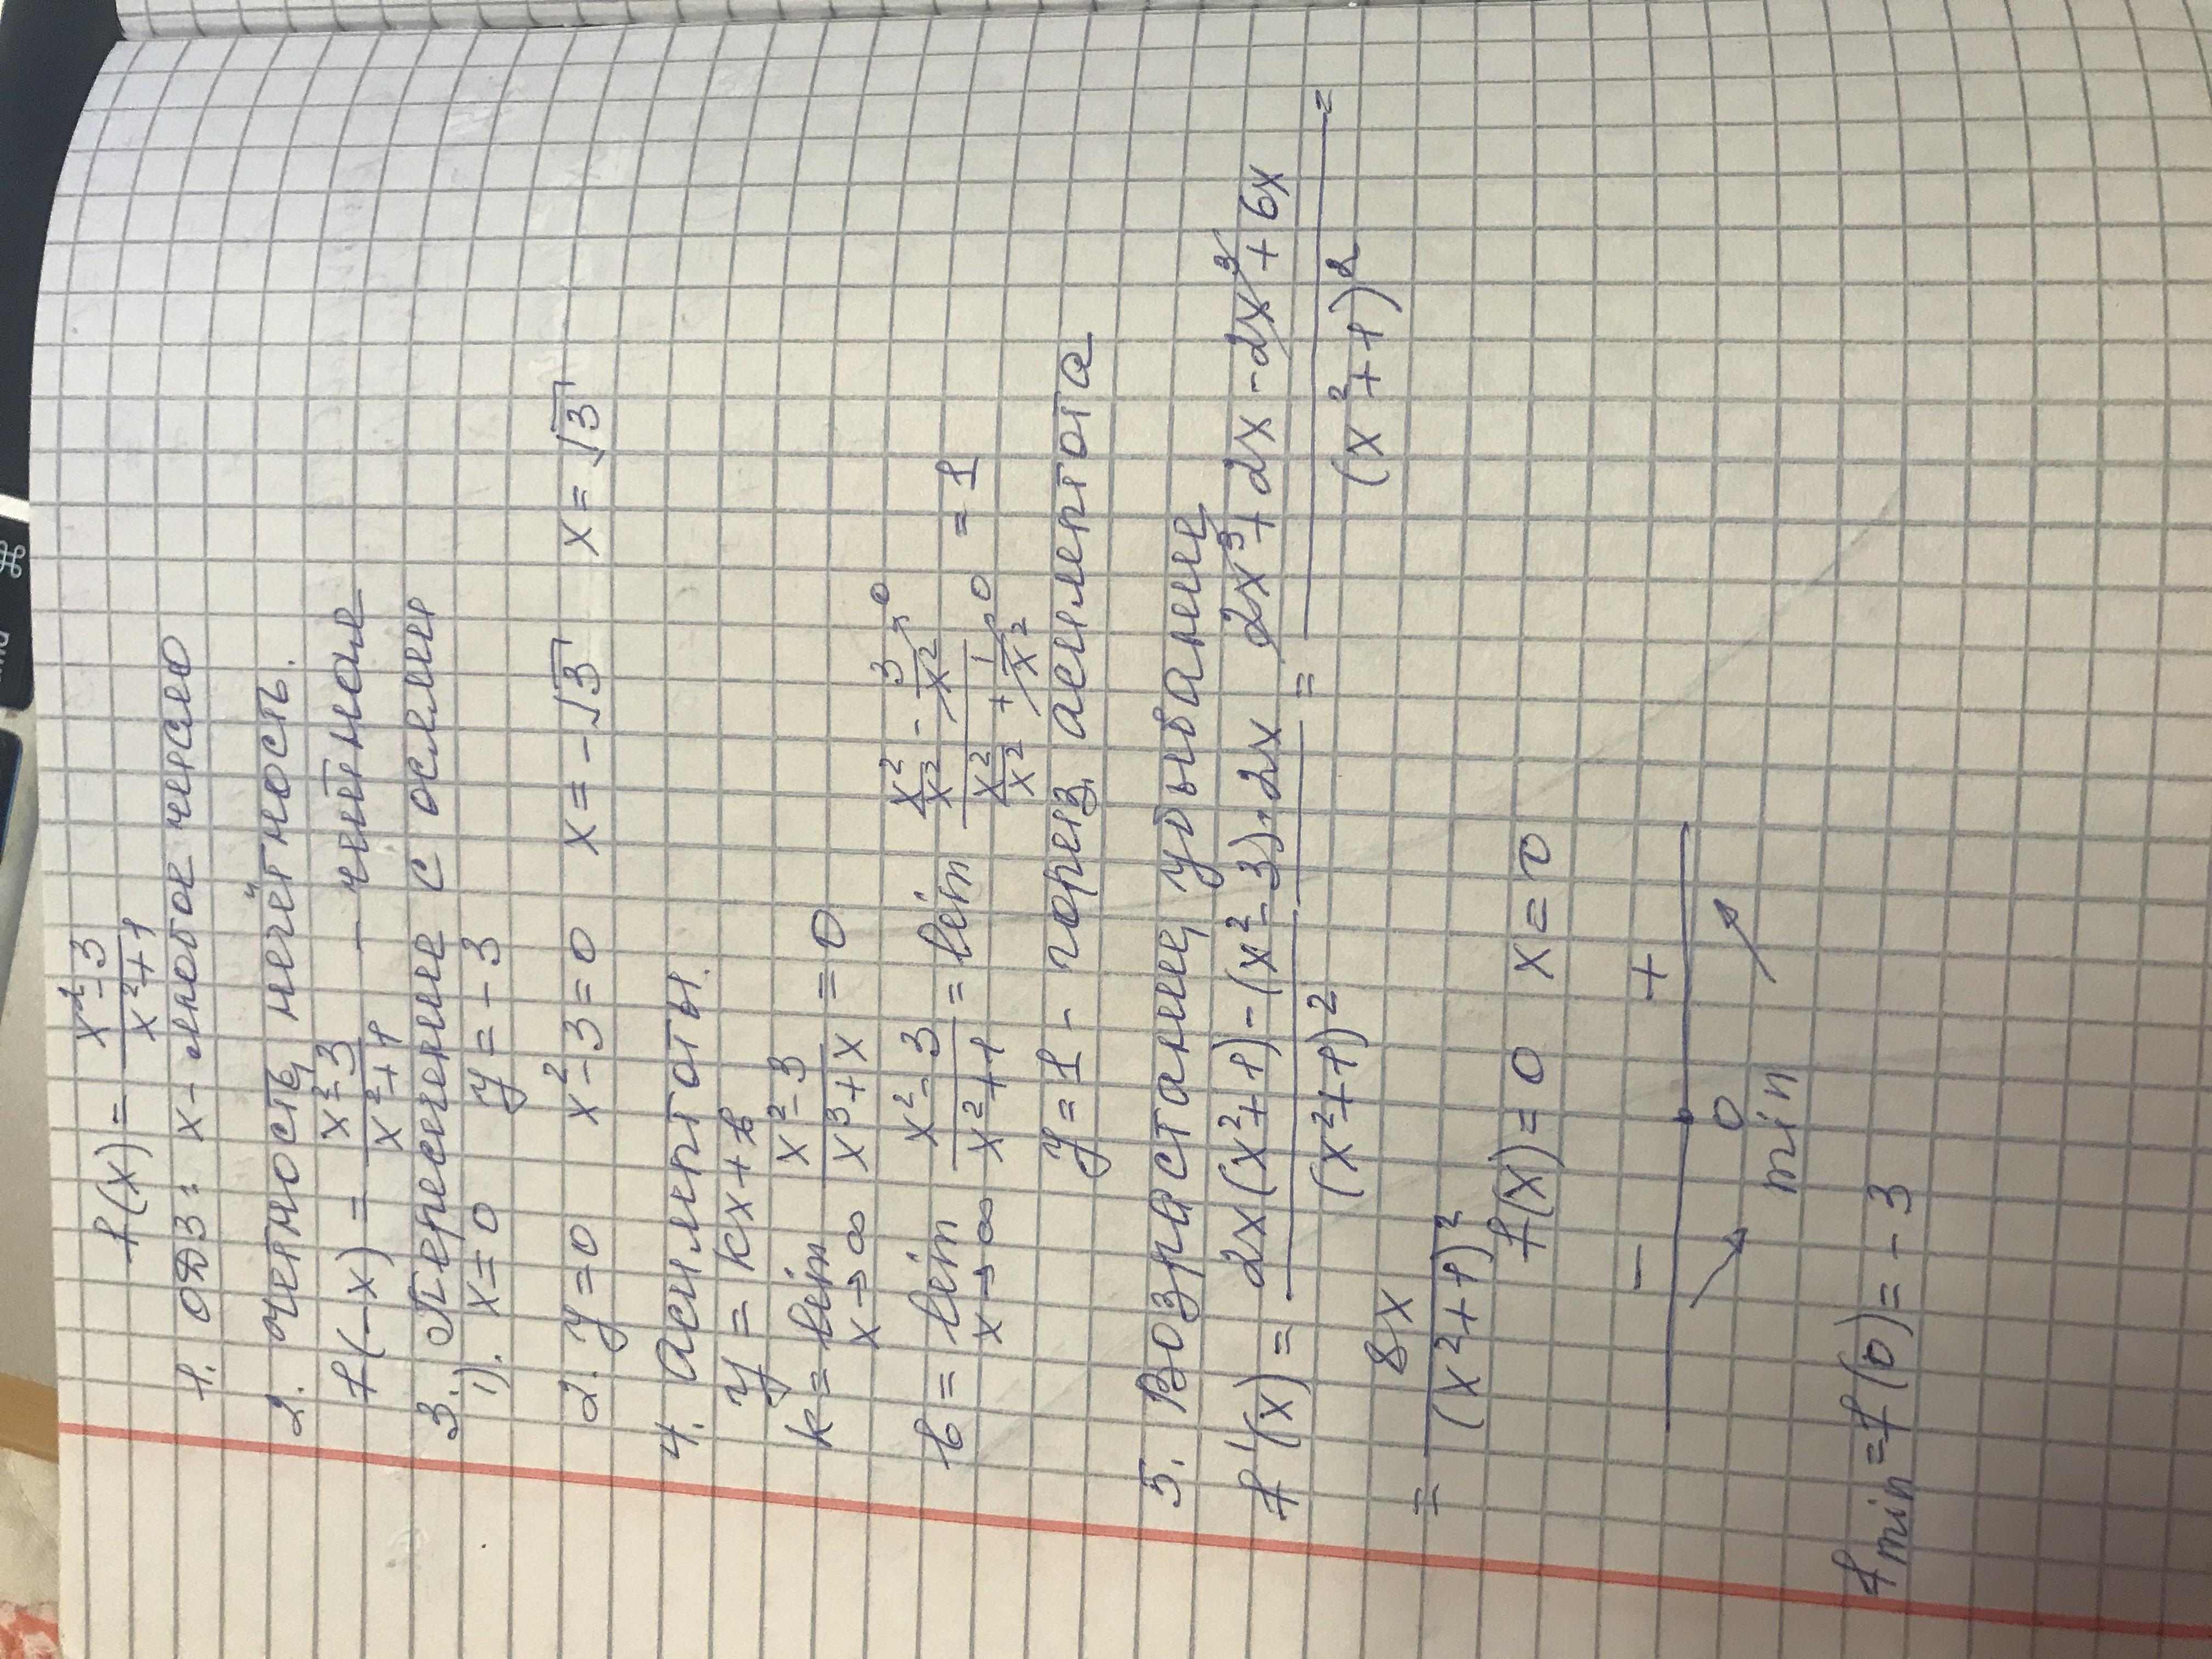 f(x) = (x² - 3)/(x² + 1)
1. ОДЗ: x - любое число
2. чётность, нечётность.
f(-x) = (x² - 3)/(x² + 1) - чётная
3. Пересечение с осями
1). x = 0 y = -3
2. y = 0 x² - 3 = 0 x = -√3 x = √3
4. Асимптоты.
y = kx + b
k = lim x→∞ (x² - 3)/(x³ + x) = 0
b = lim x→∞ (x² - 3)/(x² + 1) = lim (x²/x² - 3/x² → 0)/(x²/x² + 1/x² → 0) = 1
y = 1 - гориз. асимптота
5. Возрастание, убывание
f'(x) = (2x(x² + 1) - (x² - 3)·2x)/(x² + 1)² = (2x³ + 2x - 2x³ + 6x)/(x² + 1)² =
= 8x/(x² + 1)²
f(x) = 0 x = 0
- +
0
min
f min = f(0) = -3